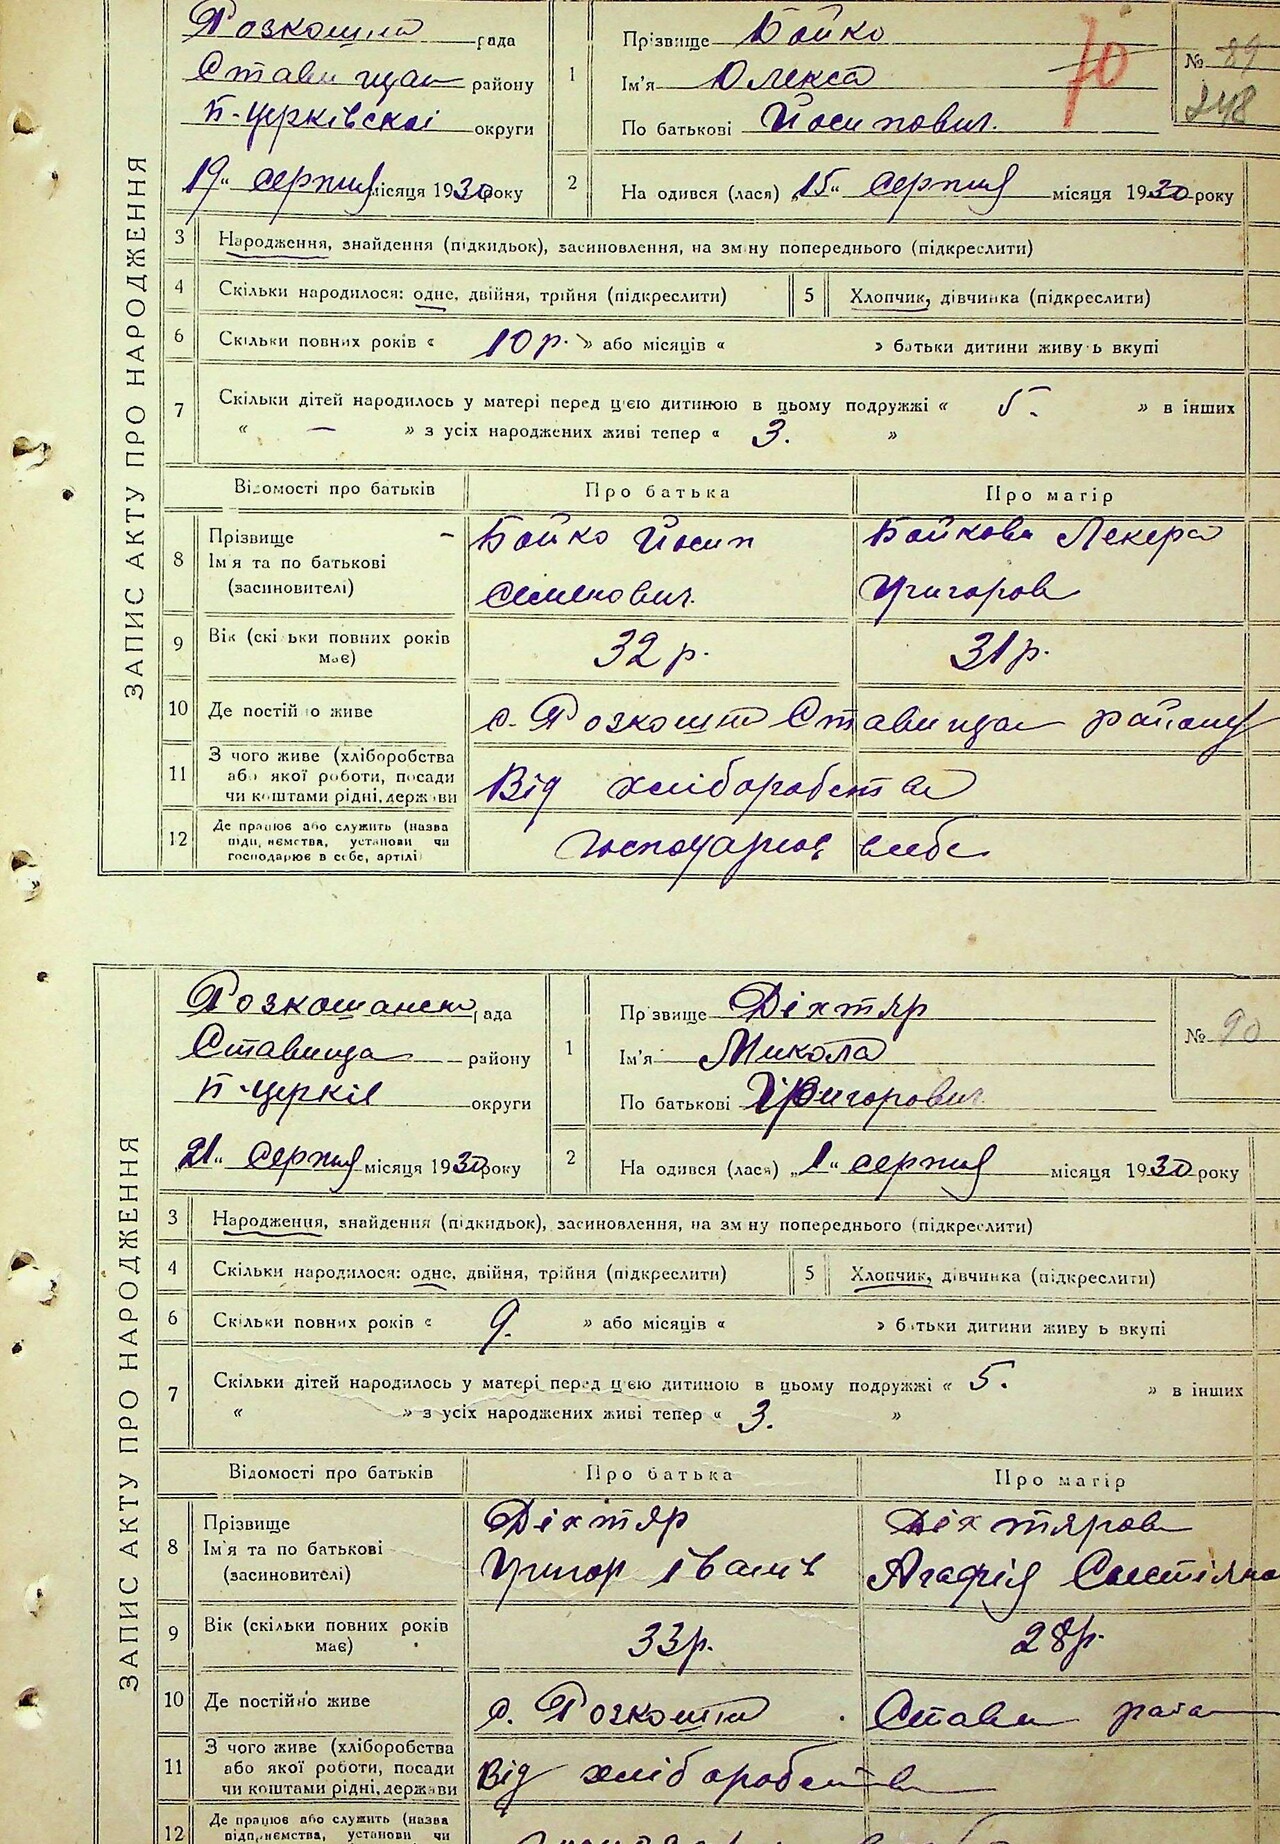 ЗАПИС АКТУ ПРО НАРОДЖЕННЯ
Розкошна рада
Ставищан району
Б-церківскої округи
19 серпня місяця 1930 року
1 Прізвище Бойко
Ім'я Олекса
По батькові Йосипович.
70
№ 89
248
2 На одився (лася) „15" серпня місяця 1930 року
3 Народження, знайдення (підкидьок), засиновлення, на зміну попереднього (підкреслити)
4 Скільки народилося: одне, двійня, трійня (підкреслити) 5 Хлопчик, дівчинка (підкреслити)
6 Скільки повних років « 10 р. » або місяців « » батьки дитини живу ь вкупі
7 Скільки дітей народилось у матері перед цією дитиною в цьому подружжі « 5. » в інших
« — » з усіх народжених живі тепер « 3. »
Відомості про батьків Про батька Про матір
8 Прізвище Бойко Йосип Бойкова Лекера
Ім'я та по батькові
(засиновителі) Семенович. Григоров
9 Вік (скі ьки повних років має) 32 р. 31 р.
10 Де постійно живе с. Розкошна Ставищан району
11 З чого живе (хліборобства
або якої роботи, посади
чи коштами рідні, держави Від хліборобства
12 Де працює або служить (назва
підприємства, установи чи
господарює в себе, артілі) всебе
ЗАПИС АКТУ ПРО НАРОДЖЕННЯ
Розкошанска рада
Ставища району
Б-церків округи
21" серпня місяця 1930 року
1 Прізвище Діхтяр
Ім'я Микола
По батькові Григорович.
№ 90
2 На одився (лася) „1" серпня місяця 1930 року
3 Народження, знайдення (підкидьок), засиновлення, на зміну попереднього (підкреслити)
4 Скільки народилося: одне, двійня, трійня (підкреслити) 5 Хлопчик, дівчинка (підкреслити)
6 Скільки повних років « 9. » або місяців « » батьки дитини живу ь вкупі
7 Скільки дітей народилось у матері перед цією дитиною в цьому подружжі « 5. » в інших
« » з усіх народжених живі тепер « 3. »
Відомості про батьків Про батька Про матір
8 Прізвище Діхтяр Діхтярова
Ім'я та по батькові Григор Іванів Агафія
(засиновителі)
9 Вік (скільки повних років має) 33 р. 28 р.
10 Де постійно живе с. Розкошна Стави
11 З чого живе (хліборобства
або якої роботи, посади
чи коштами рідні, держави Від хліборобства
12 Де працює або служить (назва
підприємства, установи чи